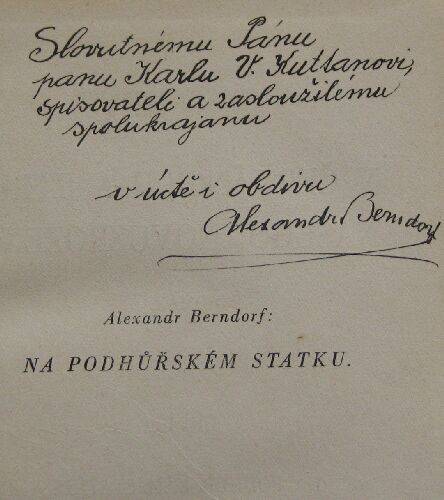 Slovutnému Pánu
panu Karlu V. Kuttanovi,
spisovateli a zasloužilému
spolukrajanu
v úctě i obdivu
Alexandr Berndorf
Alexandr Berndorf:
NA PODHŮŘSKÉM STATKU.